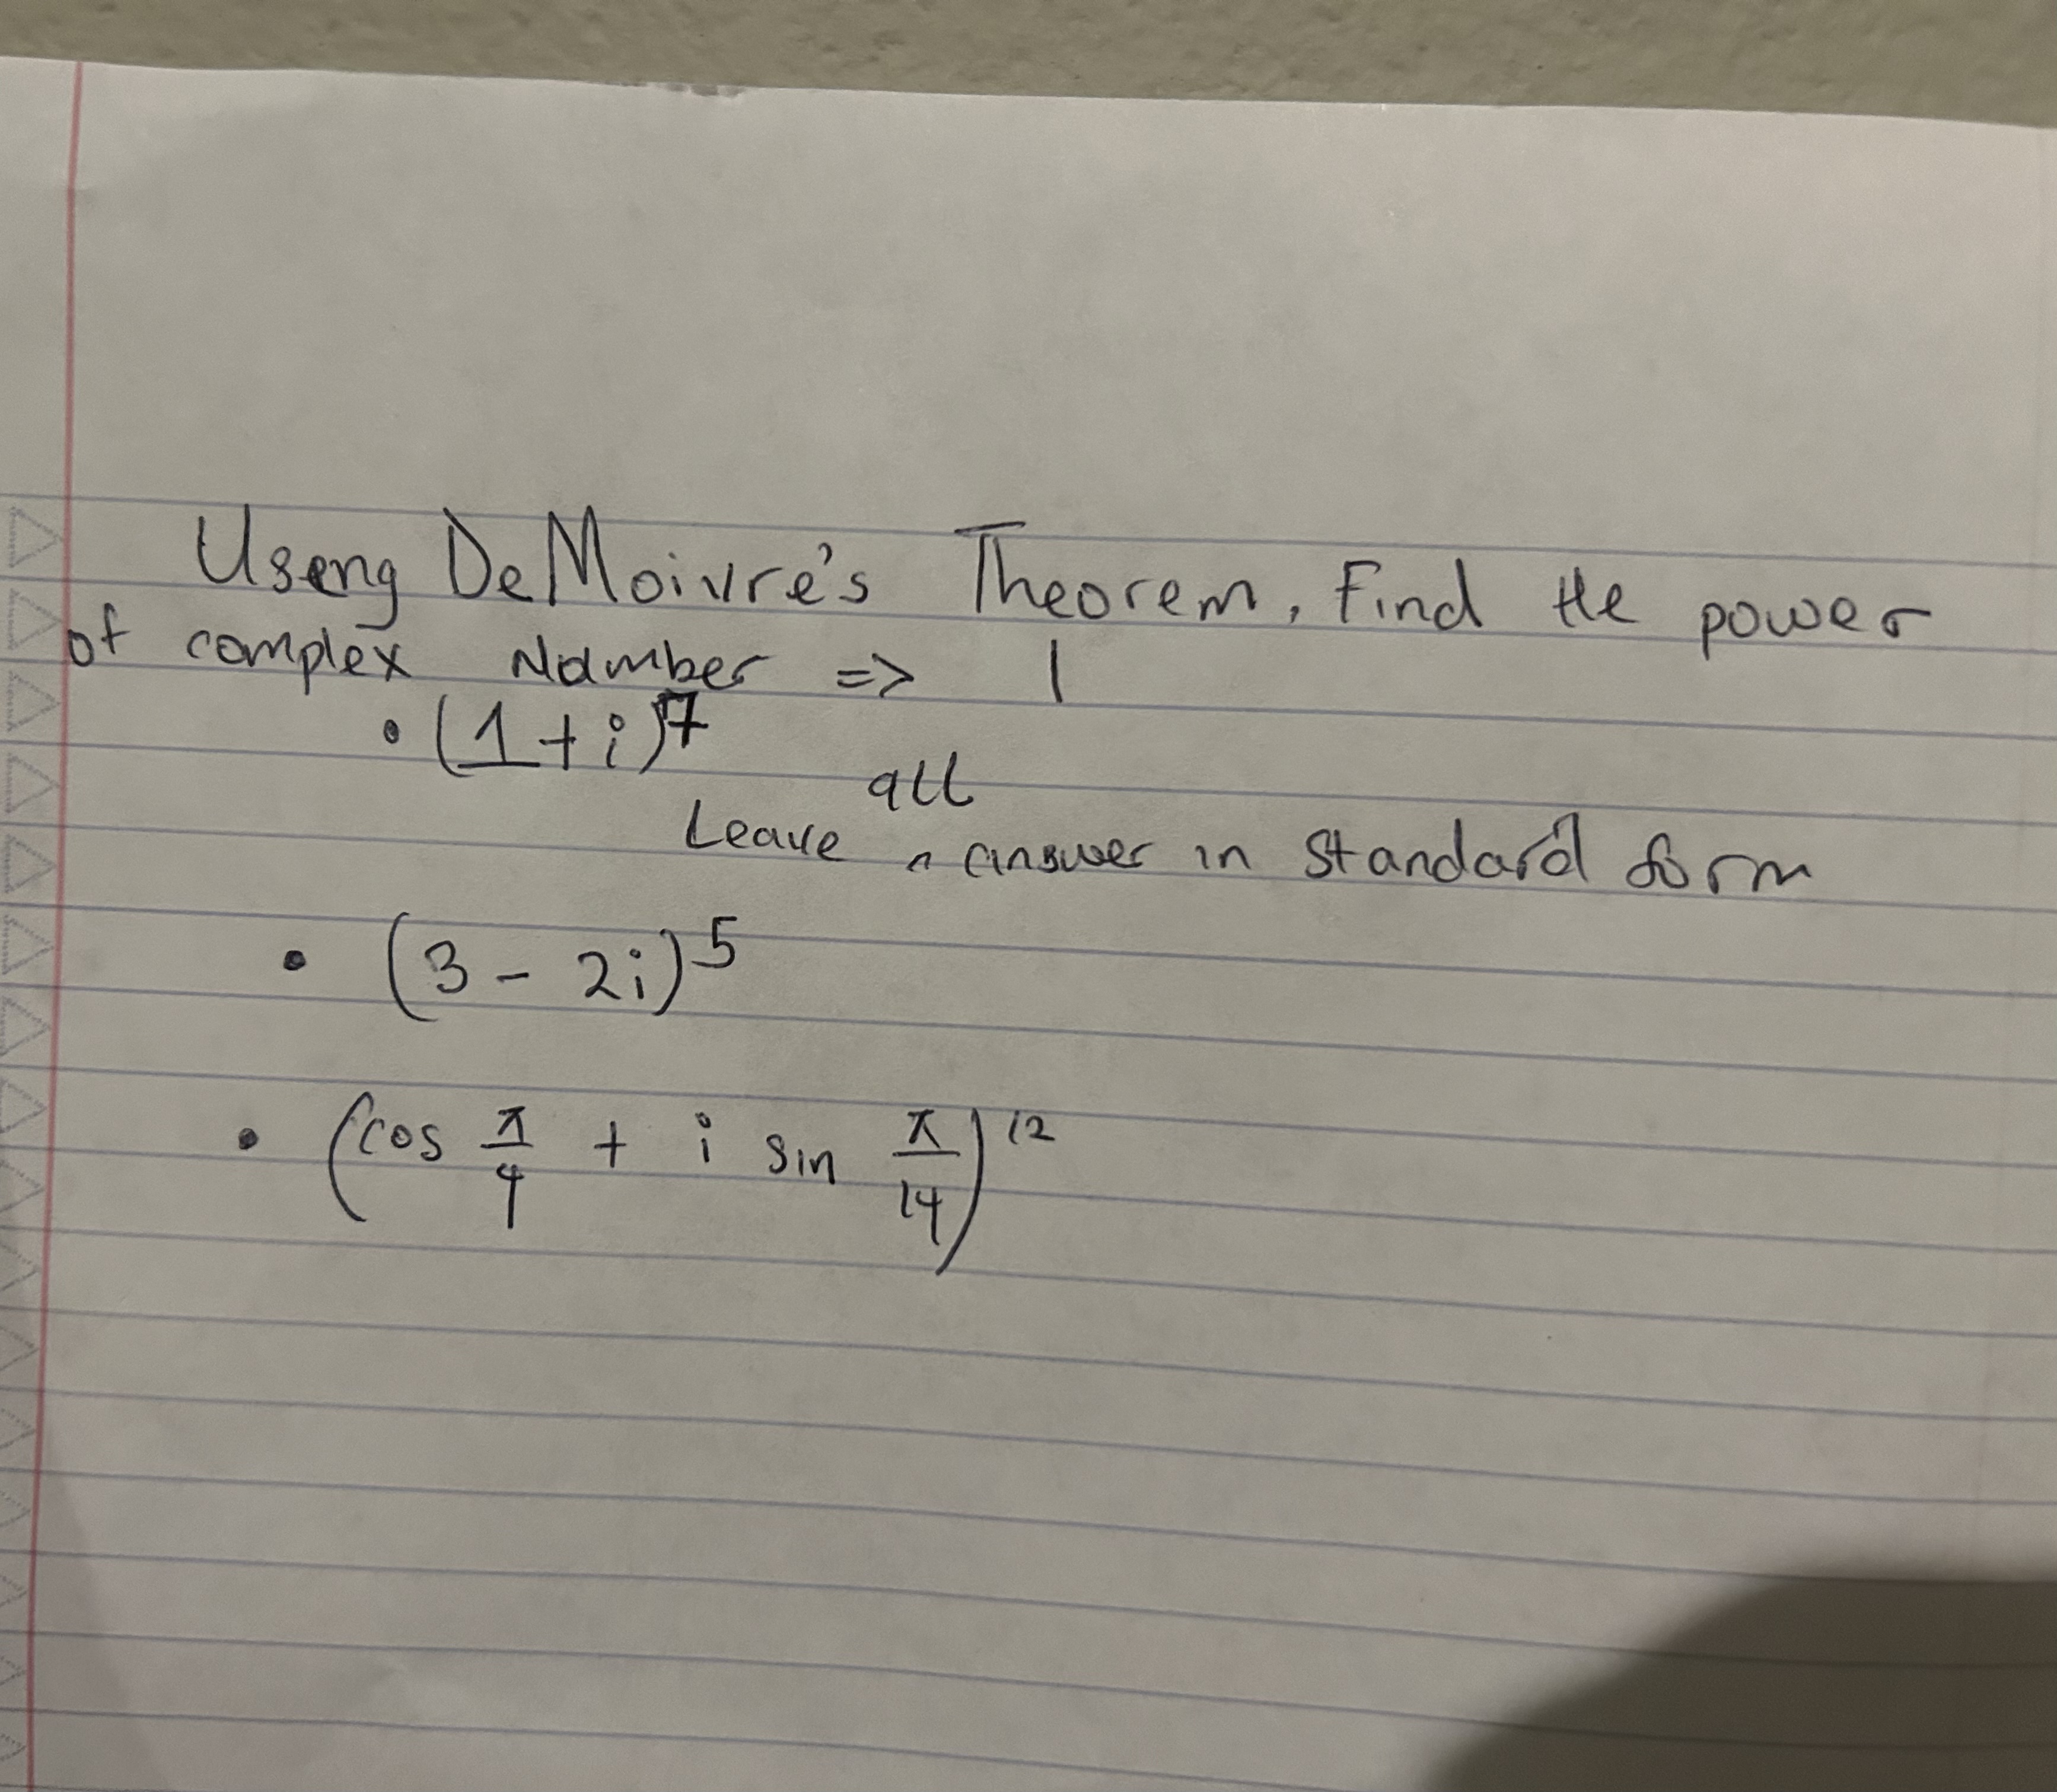 Useng DeMoivre's Theorem, Find the power
of complex Number => 1
• (1 + i)⁷
all
Leave ^ answer in standard form
• (3 - 2i)⁵
• (cos π/4 + i sin π/14)¹²